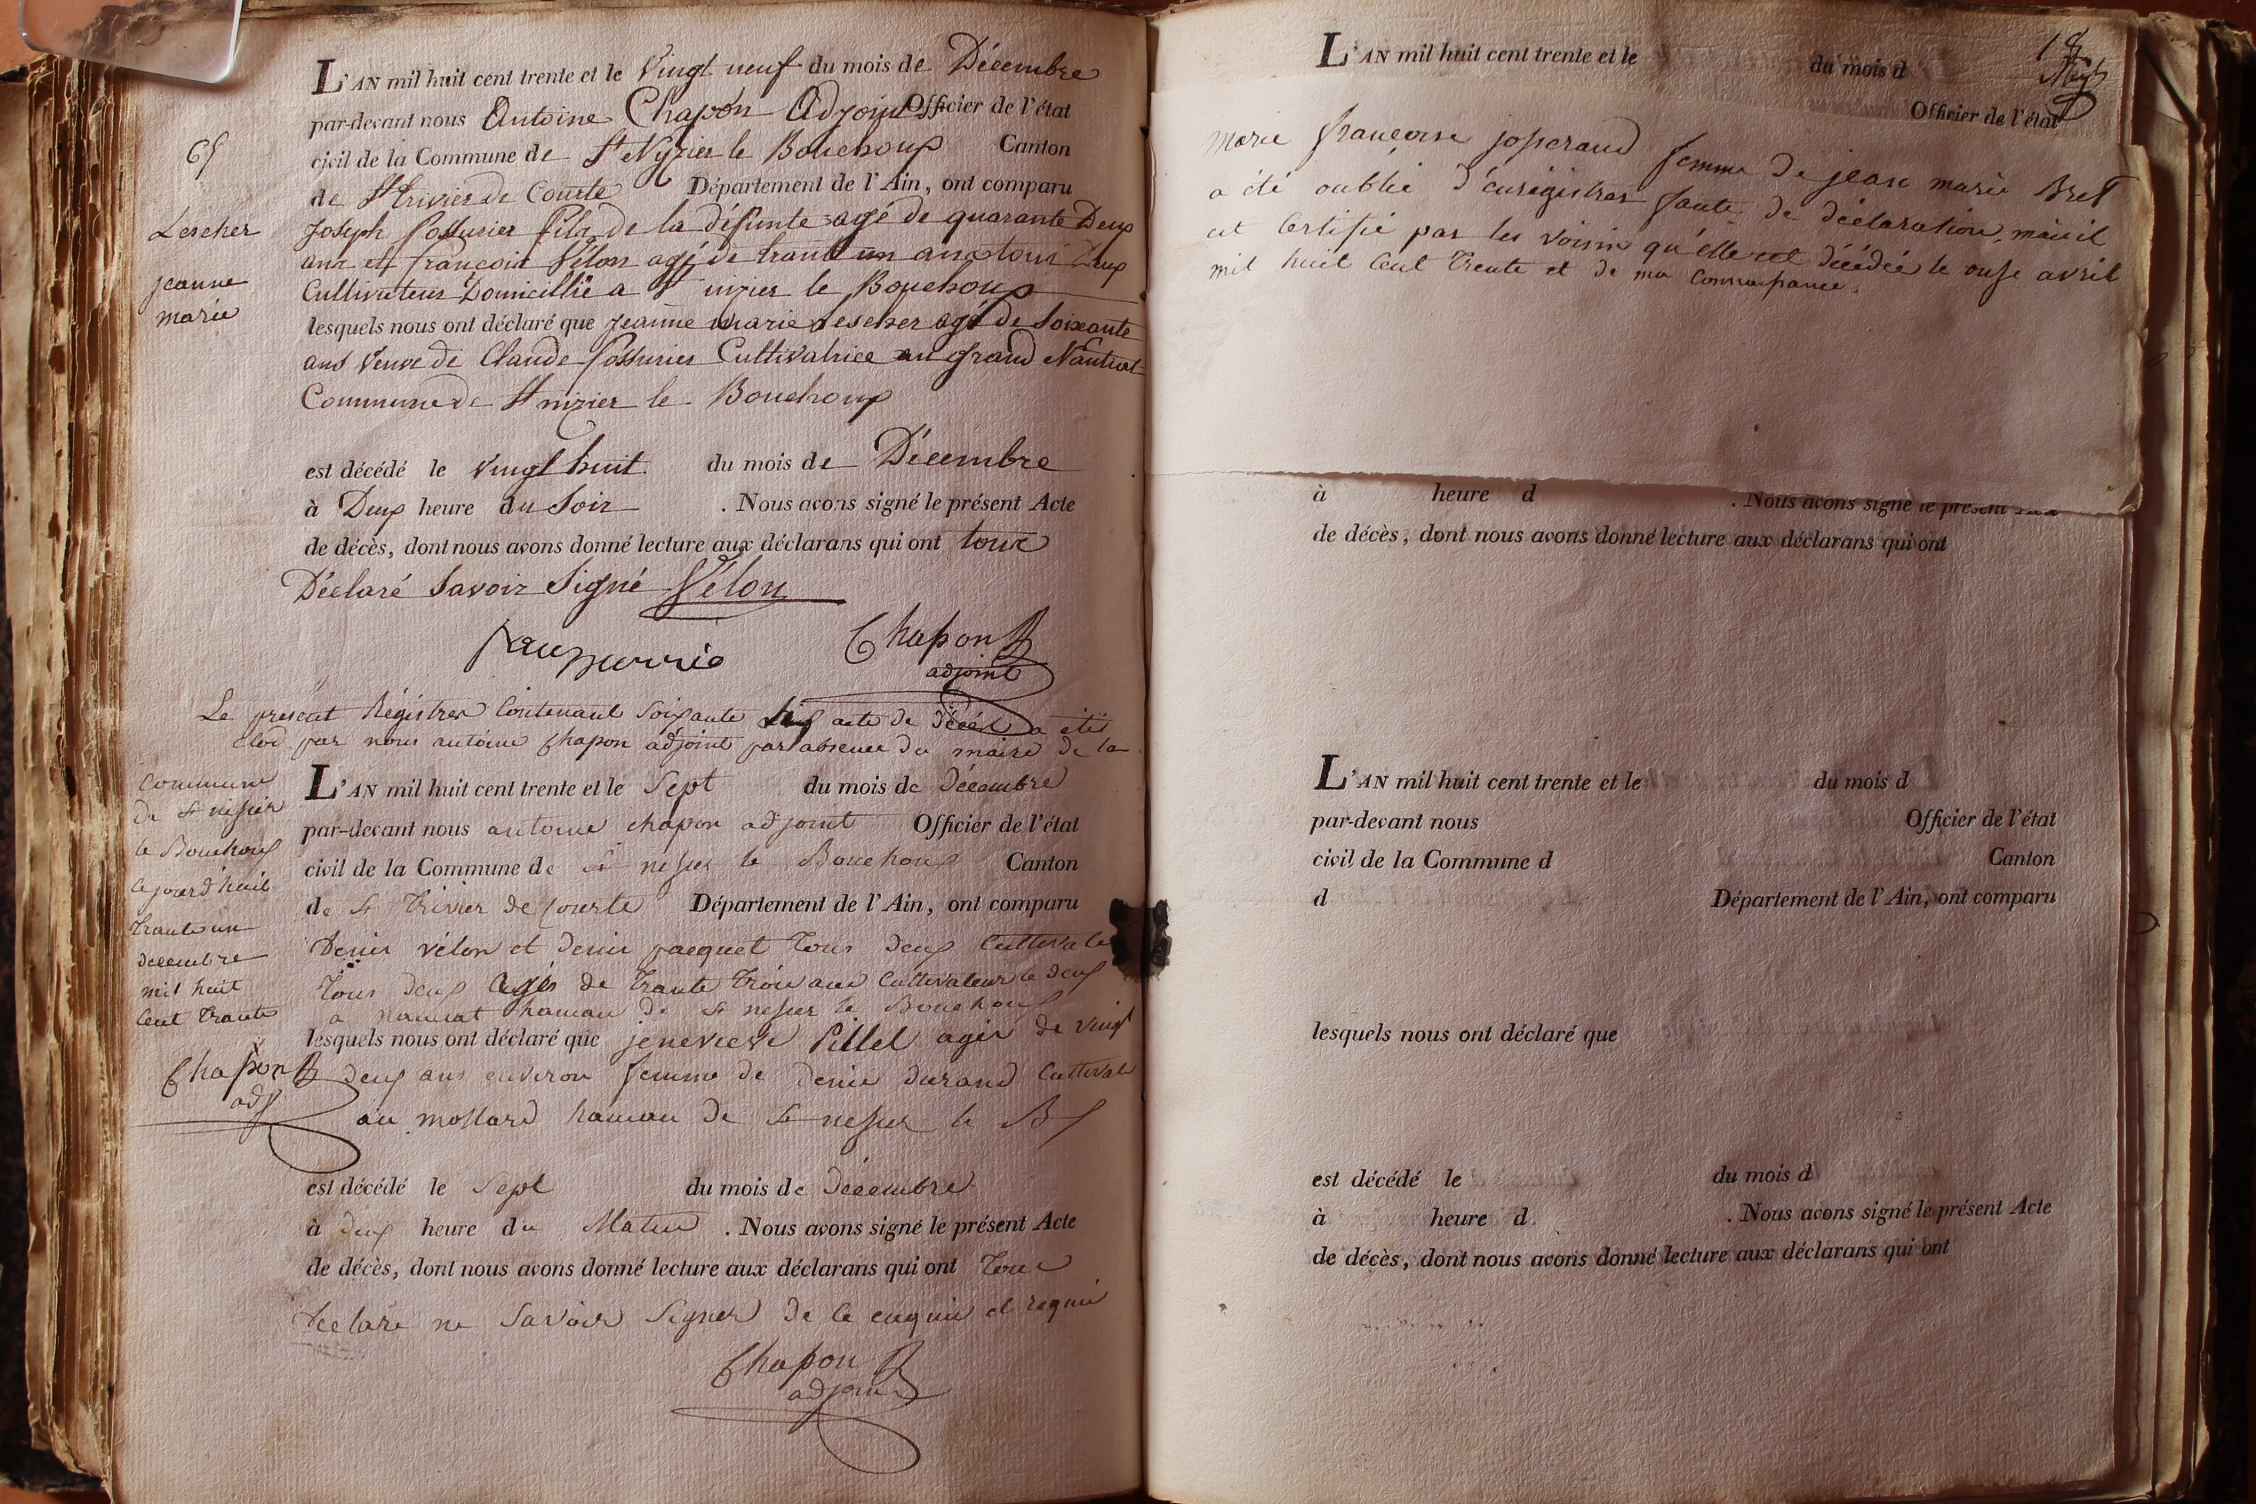 65
Lescher
jeanne
marie
L'AN mil huit cent trente et le Vingt neuf du mois de Décembre
par-devant nous Antoine Chapon Adjoint Officier de l'état
civil de la Commune de St Nyzier le Bouchoux Canton
de St trivier de Courte Département de l'Ain, ont comparu
Joseph fils de la défunte agé de quarante Deux
ans et françois Vélon agé de trante un ans tous Deux
Cultivateurs Domicillié a St nizier le Bouchoux
lesquels nous ont déclaré que jeanne marie Lescher agé de Soixante
ans Veuve de Claude Cultivatrice au grand Nantuat
Commune de St nizier le Bouchoux
est décédé le vingt huit du mois de Décembre
à Deux heure du Soir . Nous avons signé le présent Acte
de décès, dont nous avons donné lecture aux déclarans qui ont tous
Déclaré Savoir Signé Vélon
Chapon
adjoint
Le présent Régistres Contenant Soixante acte de décès a été
clos par nous antoine chapon adjoint par absence du maire de la
commune
de St nésier
le Bouchoux
cejourd'huit
trante un
décembre
mil huit
Cent trante
Chapon
adj
L'AN mil huit cent trente et le Sept du mois de Décembre
par-devant nous antoine chapon adjoint Officier de l'état
civil de la Commune de St nesier le Bouchoux Canton
de St Trivier de Courte Département de l'Ain, ont comparu
Denis vélon et denis pacquet tous deux
tous deux agés de trante trois ans Cultivateur le deux
a nantuat hamau de St nesier le Bouchoux
lesquels nous ont déclaré que jenevieve Pillet agés de vingt
deux ans environ femme de denis durand
au mollard hamau de St nesier le B
est décédé le Sept du mois de décembre
à deux heure du Matin . Nous avons signé le présent Acte
de décès, dont nous avons donné lecture aux déclarans qui ont tous
Declaré ne Savoir Signer de ce enquis et requis
Chapon
adjoint
18
L'AN mil huit cent trente et le du mois d
Officier de l'état
marie françoise josserand femme de jean marie Bret
a été oublié d'enrégistrer faute de déclaration, mais il
est Certifié par les voisins qu'elle est décédée le onze avril
mil huit Cent Trente et de ma
à heure d . Nous avons signé le présent
de décès, dont nous avons donné lecture aux déclarans qui ont
L'AN mil huit cent trente et le du mois d
par-devant nous Officier de l'état
civil de la Commune d Canton
d Département de l'Ain, ont comparu
lesquels nous ont déclaré que
est décédé le du mois d
à heure d . Nous avons signé le présent Acte
de décès, dont nous avons donné lecture aux déclarans qui ont